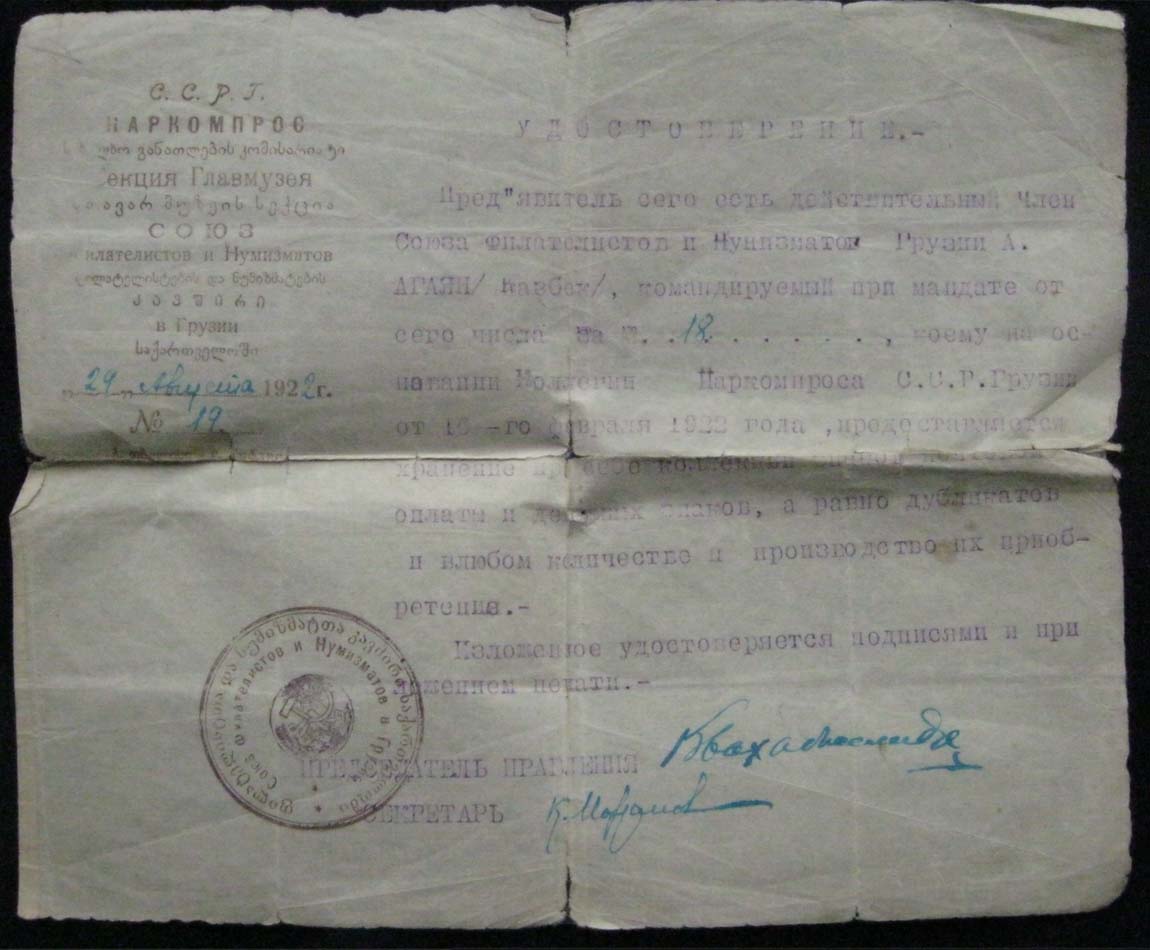 С. С. Р. Г.
НАРКОМПРОС
განათლების კომისარიატი
Секция Главмузея
მთავარ მუზეის სექცია
СОЮЗ
Филателистов и Нумизматов
ფილატელისტების და ნუმიზმატების
კავშირი
в Грузии
საქართველოში
„ 29 „ Августа 1922 г.
№ 19
УДОСТОВЕРЕНИЕ.-
Пред"явитель сего есть действительный Член
Союза Филателистов и Нумизматов Грузии А.
АГАЯН/ Казбек/, командируемый при мандате от
сего числа за №. . 18. . . . . . . , коему на ос-
новании Коллегии Наркомпроса С.С.Р.Грузии
от 16 -го февраля 1922 года ,предоставляется
хранение при себе коллекции
оплаты и денежных знаков, а равно дубликатов
и влюбом количестве и производство их приоб-
ретения.-
Изложенное удостоверяется подписями и при
ложением печати.-
ПРЕДСЕДАТЕЛЬ ПРАВЛЕНИЯ
СЕКРЕТАРЬ
ფილატელისტთა და ნუმიზმატთა კავშირი საქართველოში
Союз Филателистов и Нумизматов в Грузии